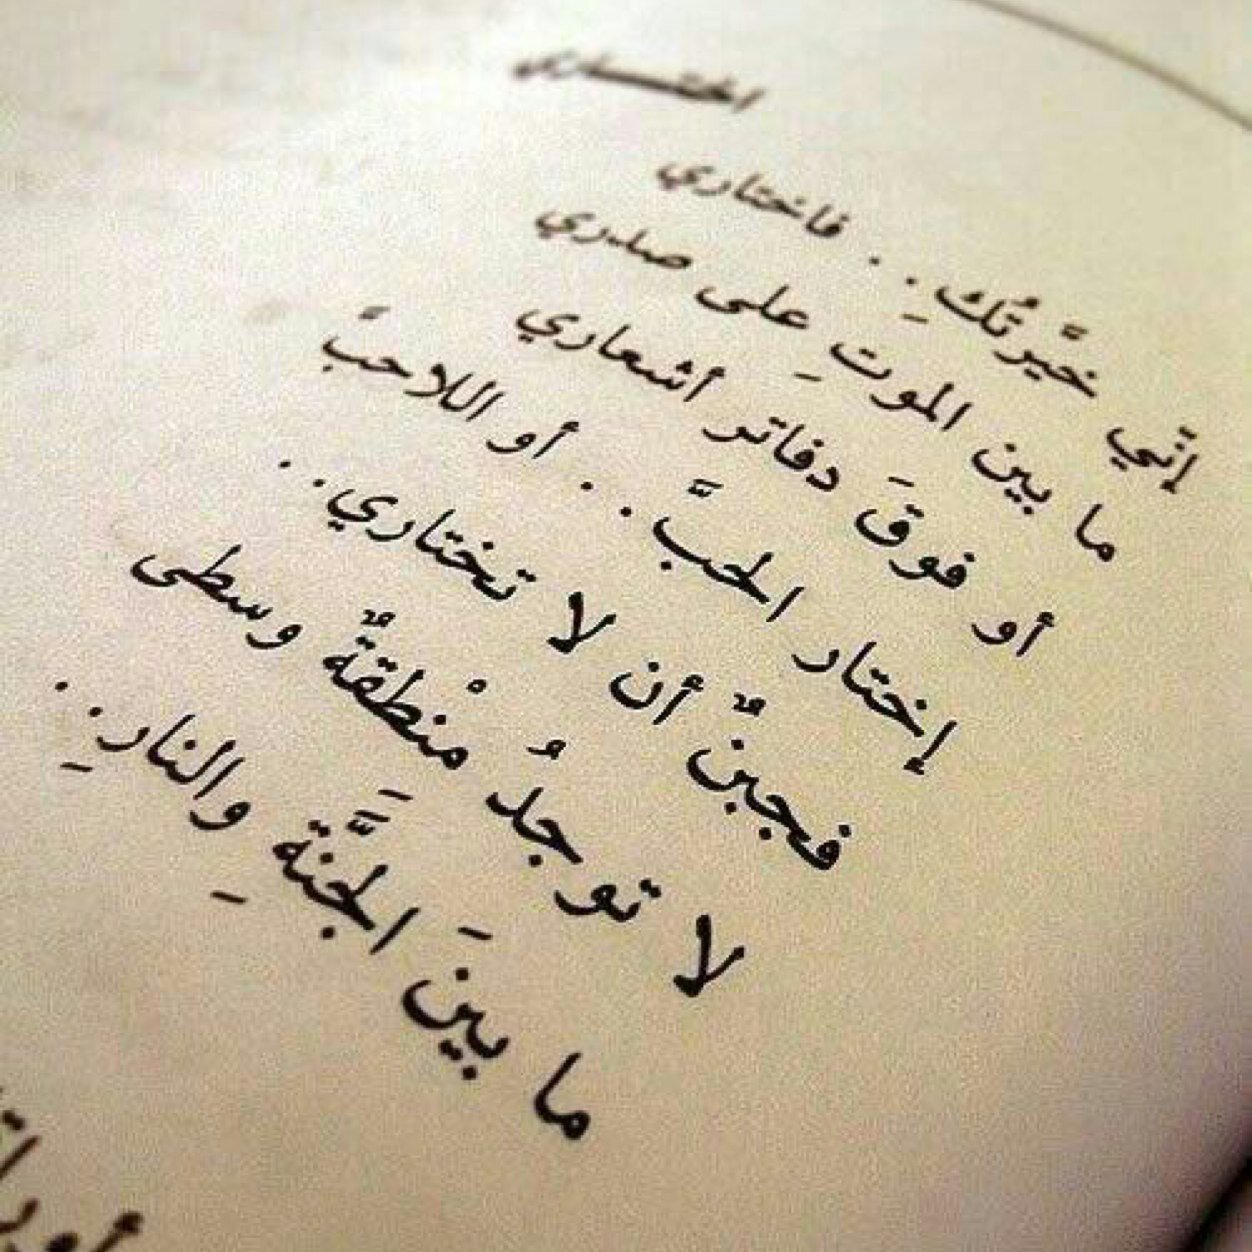 إنّي خيَّرتُكِ.. فاختاري
ما بين الموتِ على صدري
أو فوقَ دفاتر أشعاري
إختار الحبَّ.. أو اللاحبَّ
فجبنٌ أن لا تختاري..
لا توجدُ مِنْطِقةٌ وسطى
ما بينَ الجنَّةِ والنارِ..